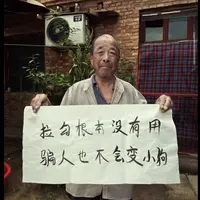 拉勾根本没有用
骗人也不会变小狗